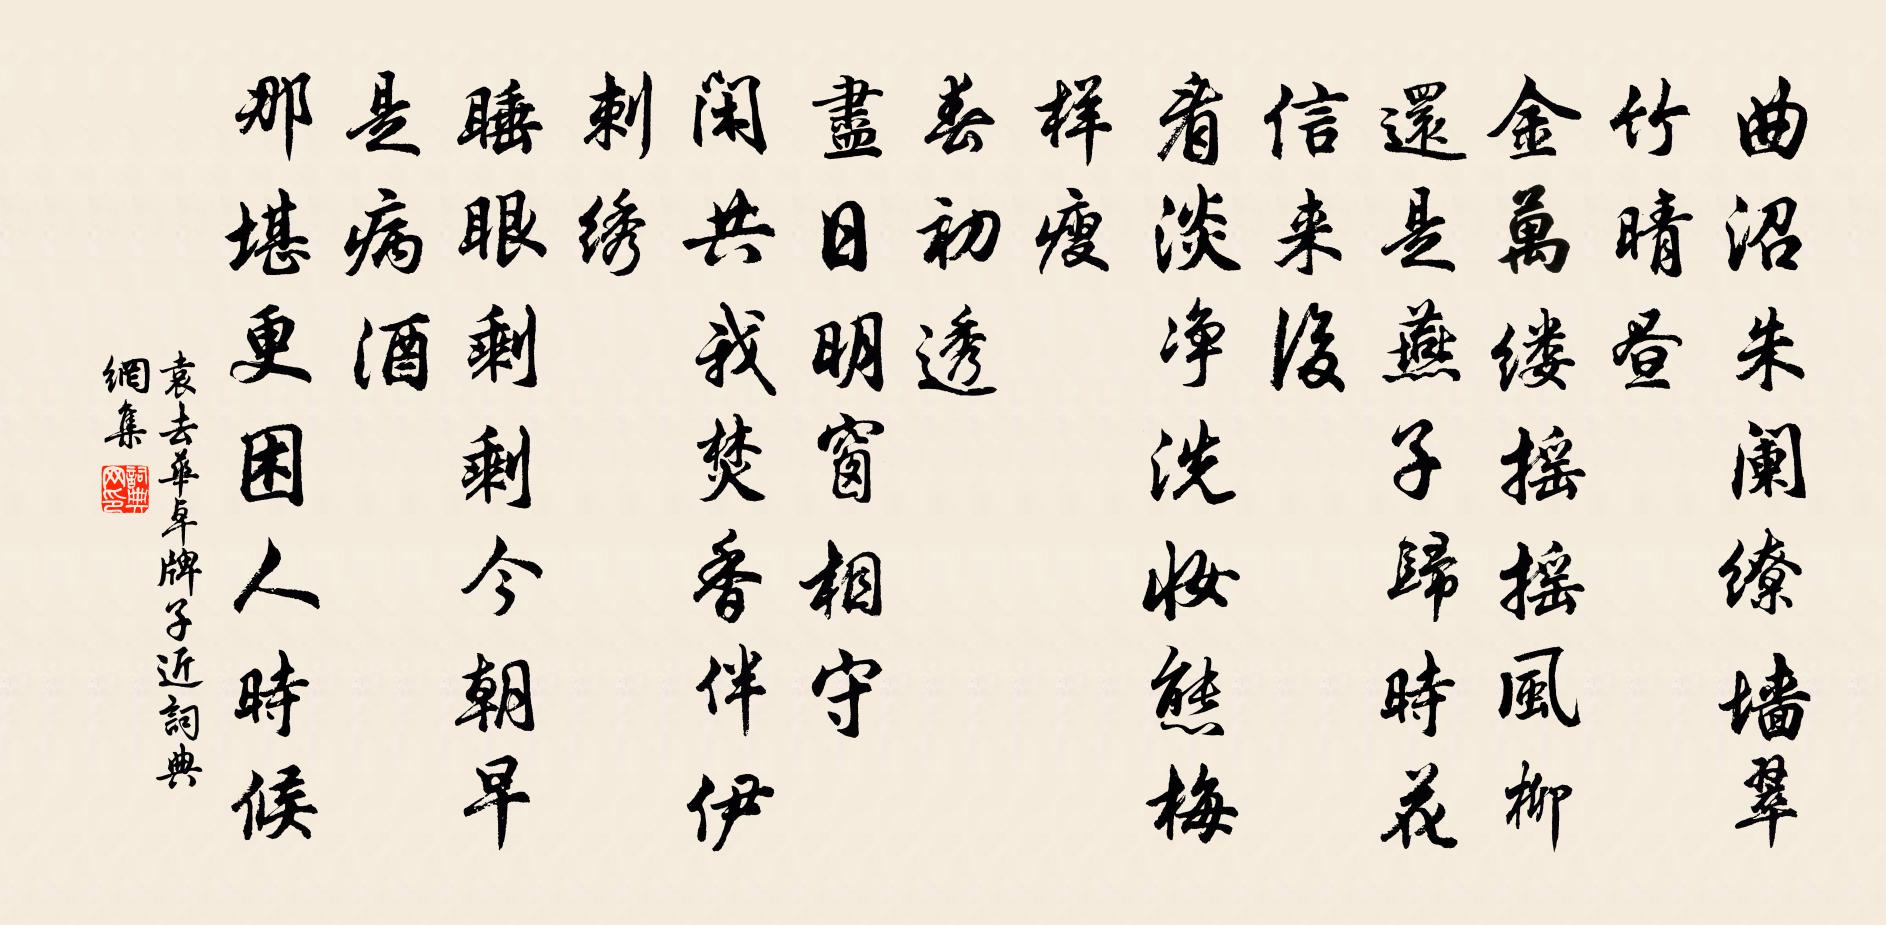 曲沼朱阑缭墙翠
竹晴昼
金萬缕摇摇風柳
還是燕子歸時花
信来後
看淡净洗妆態梅
样瘦
春初透
盡日明窗相守
闲共我焚香伴伊
刺绣
睡眼剩剩今朝早
是病酒
那堪更困人時候
袁去華卓牌子近詞典
網集
詞典
网印